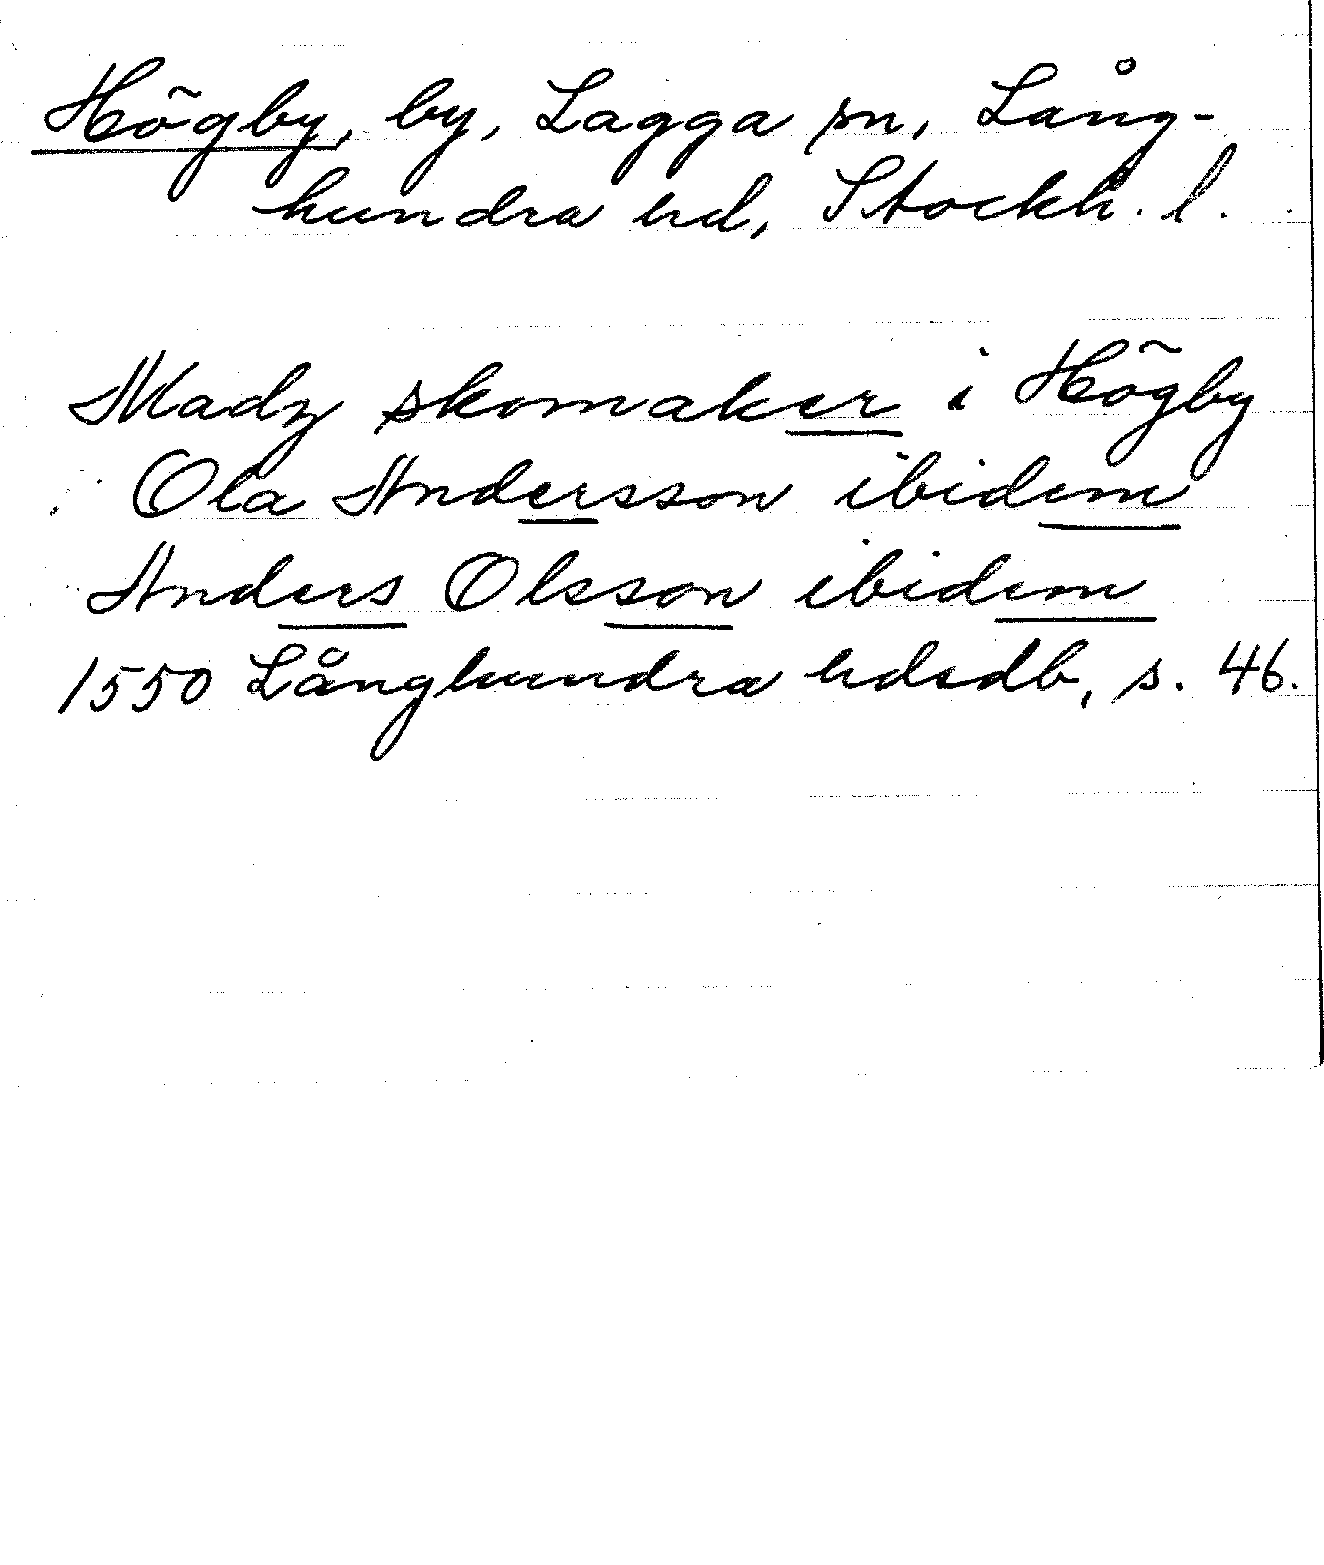 Högby, by, Lagga sn, Lång-
hundra hd, Stockh. l.
Madz skomaker i Högby
Ola Andersson ibidem
Anders Olsson ibidem
1550 Långhundra hdsdb, s. 46.